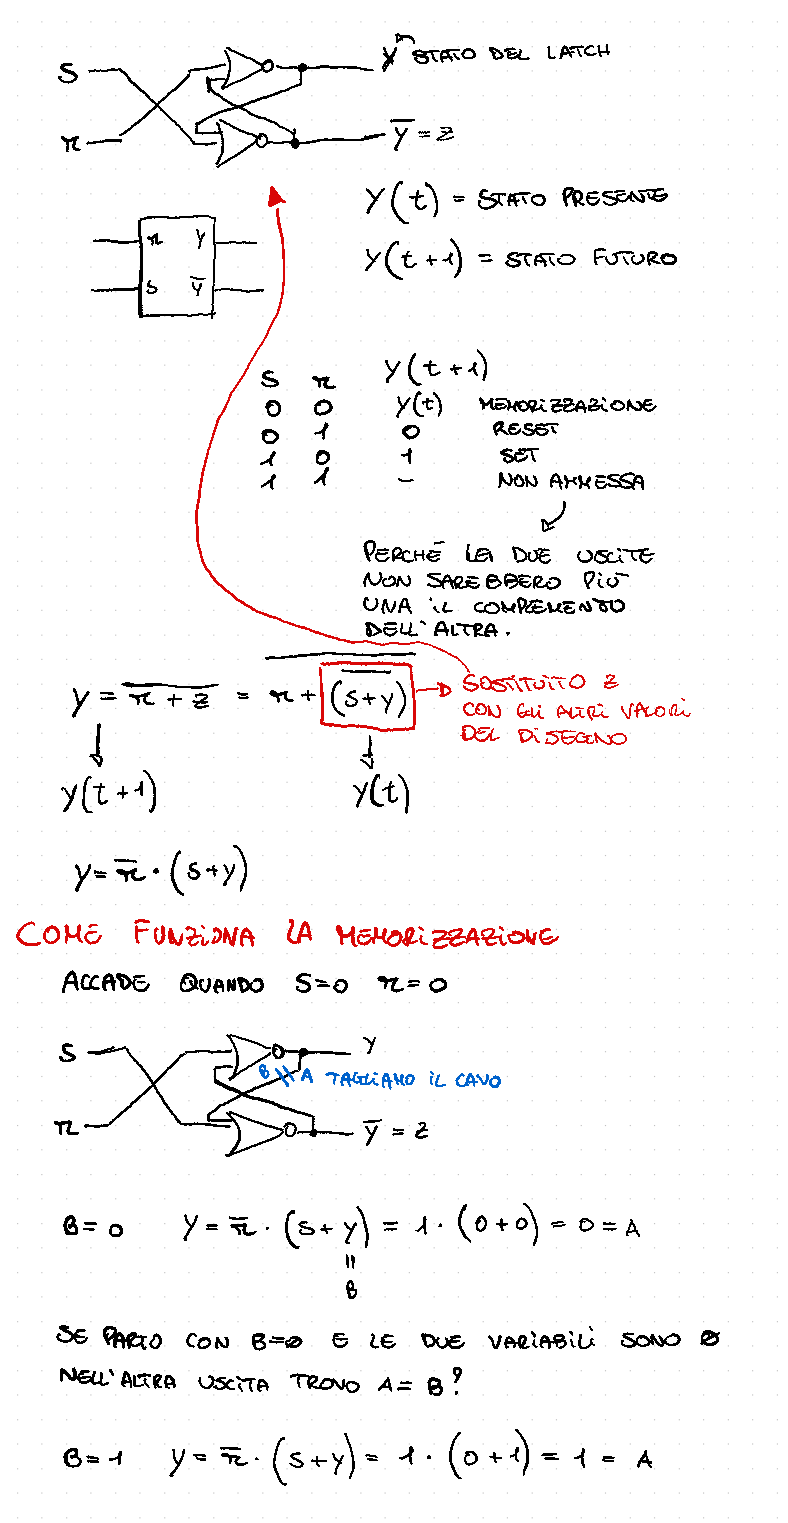 S
r
y STATO DEL LATCH
y̅ = z
y(t) = STATO PRESENTE
y(t+1) = STATO FUTURO
r y
s y̅
S r y(t+1)
0 0 y(t) MEMORIZZAZIONE
0 1 0 RESET
1 0 1 SET
1 1 - NON AMMESSA
PERCHÉ LE DUE USCITE
NON SAREBBERO PIÙ
UNA IL COMPLEMENTO
DELL'ALTRA.
y = \overline{r + z} = \overline{r + \overline{(s+y)}}
SOSTITUITO Z
CON GLI ALTRI VALORI
DEL DISEGNO
y(t+1) y(t)
y = r̅ · (s+y)
COME FUNZIONA LA MEMORIZZAZIONE
ACCADE QUANDO S=0 r=0
S
r
y
B A TAGLIAMO IL CAVO
y̅ = z
B=0 y = r̅ · (s+y) = 1 · (0+0) = 0 = A
=
B
SE PARTO CON B=0 E LE DUE VARIABILI SONO 0
NELL'ALTRA USCITA TROVO A=B?
B=1 y = r̅ · (s+y) = 1 · (0+1) = 1 = A